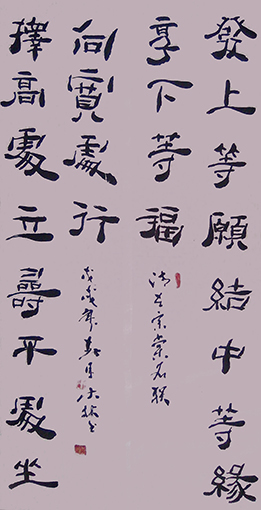 發上等願結中等緣
享下等福
清左宗棠名联
擇高處立尋平處坐
向寬處行
戊戌